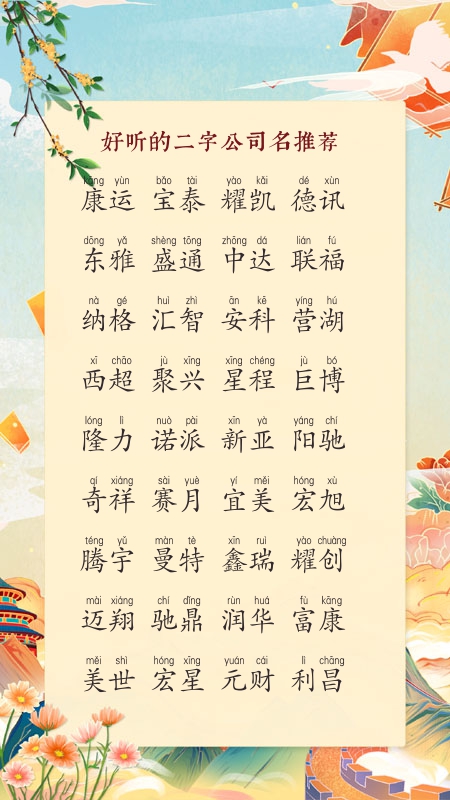 好听的二字公司名推荐
kāng yùn bǎo tài yào kǎi dé xùn
康运 宝泰 耀凯 德讯
dōng yǎ shèng tōng zhōng dá lián fú
东雅 盛通 中达 联福
nà gé huì zhì ān kē yíng hú
纳格 汇智 安科 营湖
xī chāo jù xīng xīng chéng jù bó
西超 聚兴 星程 巨博
lóng lì nuò pài xīn yà yáng chí
隆力 诺派 新亚 阳驰
qí xiáng sài yuè yí měi hóng xù
奇祥 赛月 宜美 宏旭
téng yǔ màn tè xīn ruì yào chuàng
腾宇 曼特 鑫瑞 耀创
mài xiáng chí dǐng rùn huá fù kāng
迈翔 驰鼎 润华 富康
měi shì hóng xīng yuán cái lì chāng
美世 宏星 元财 利昌